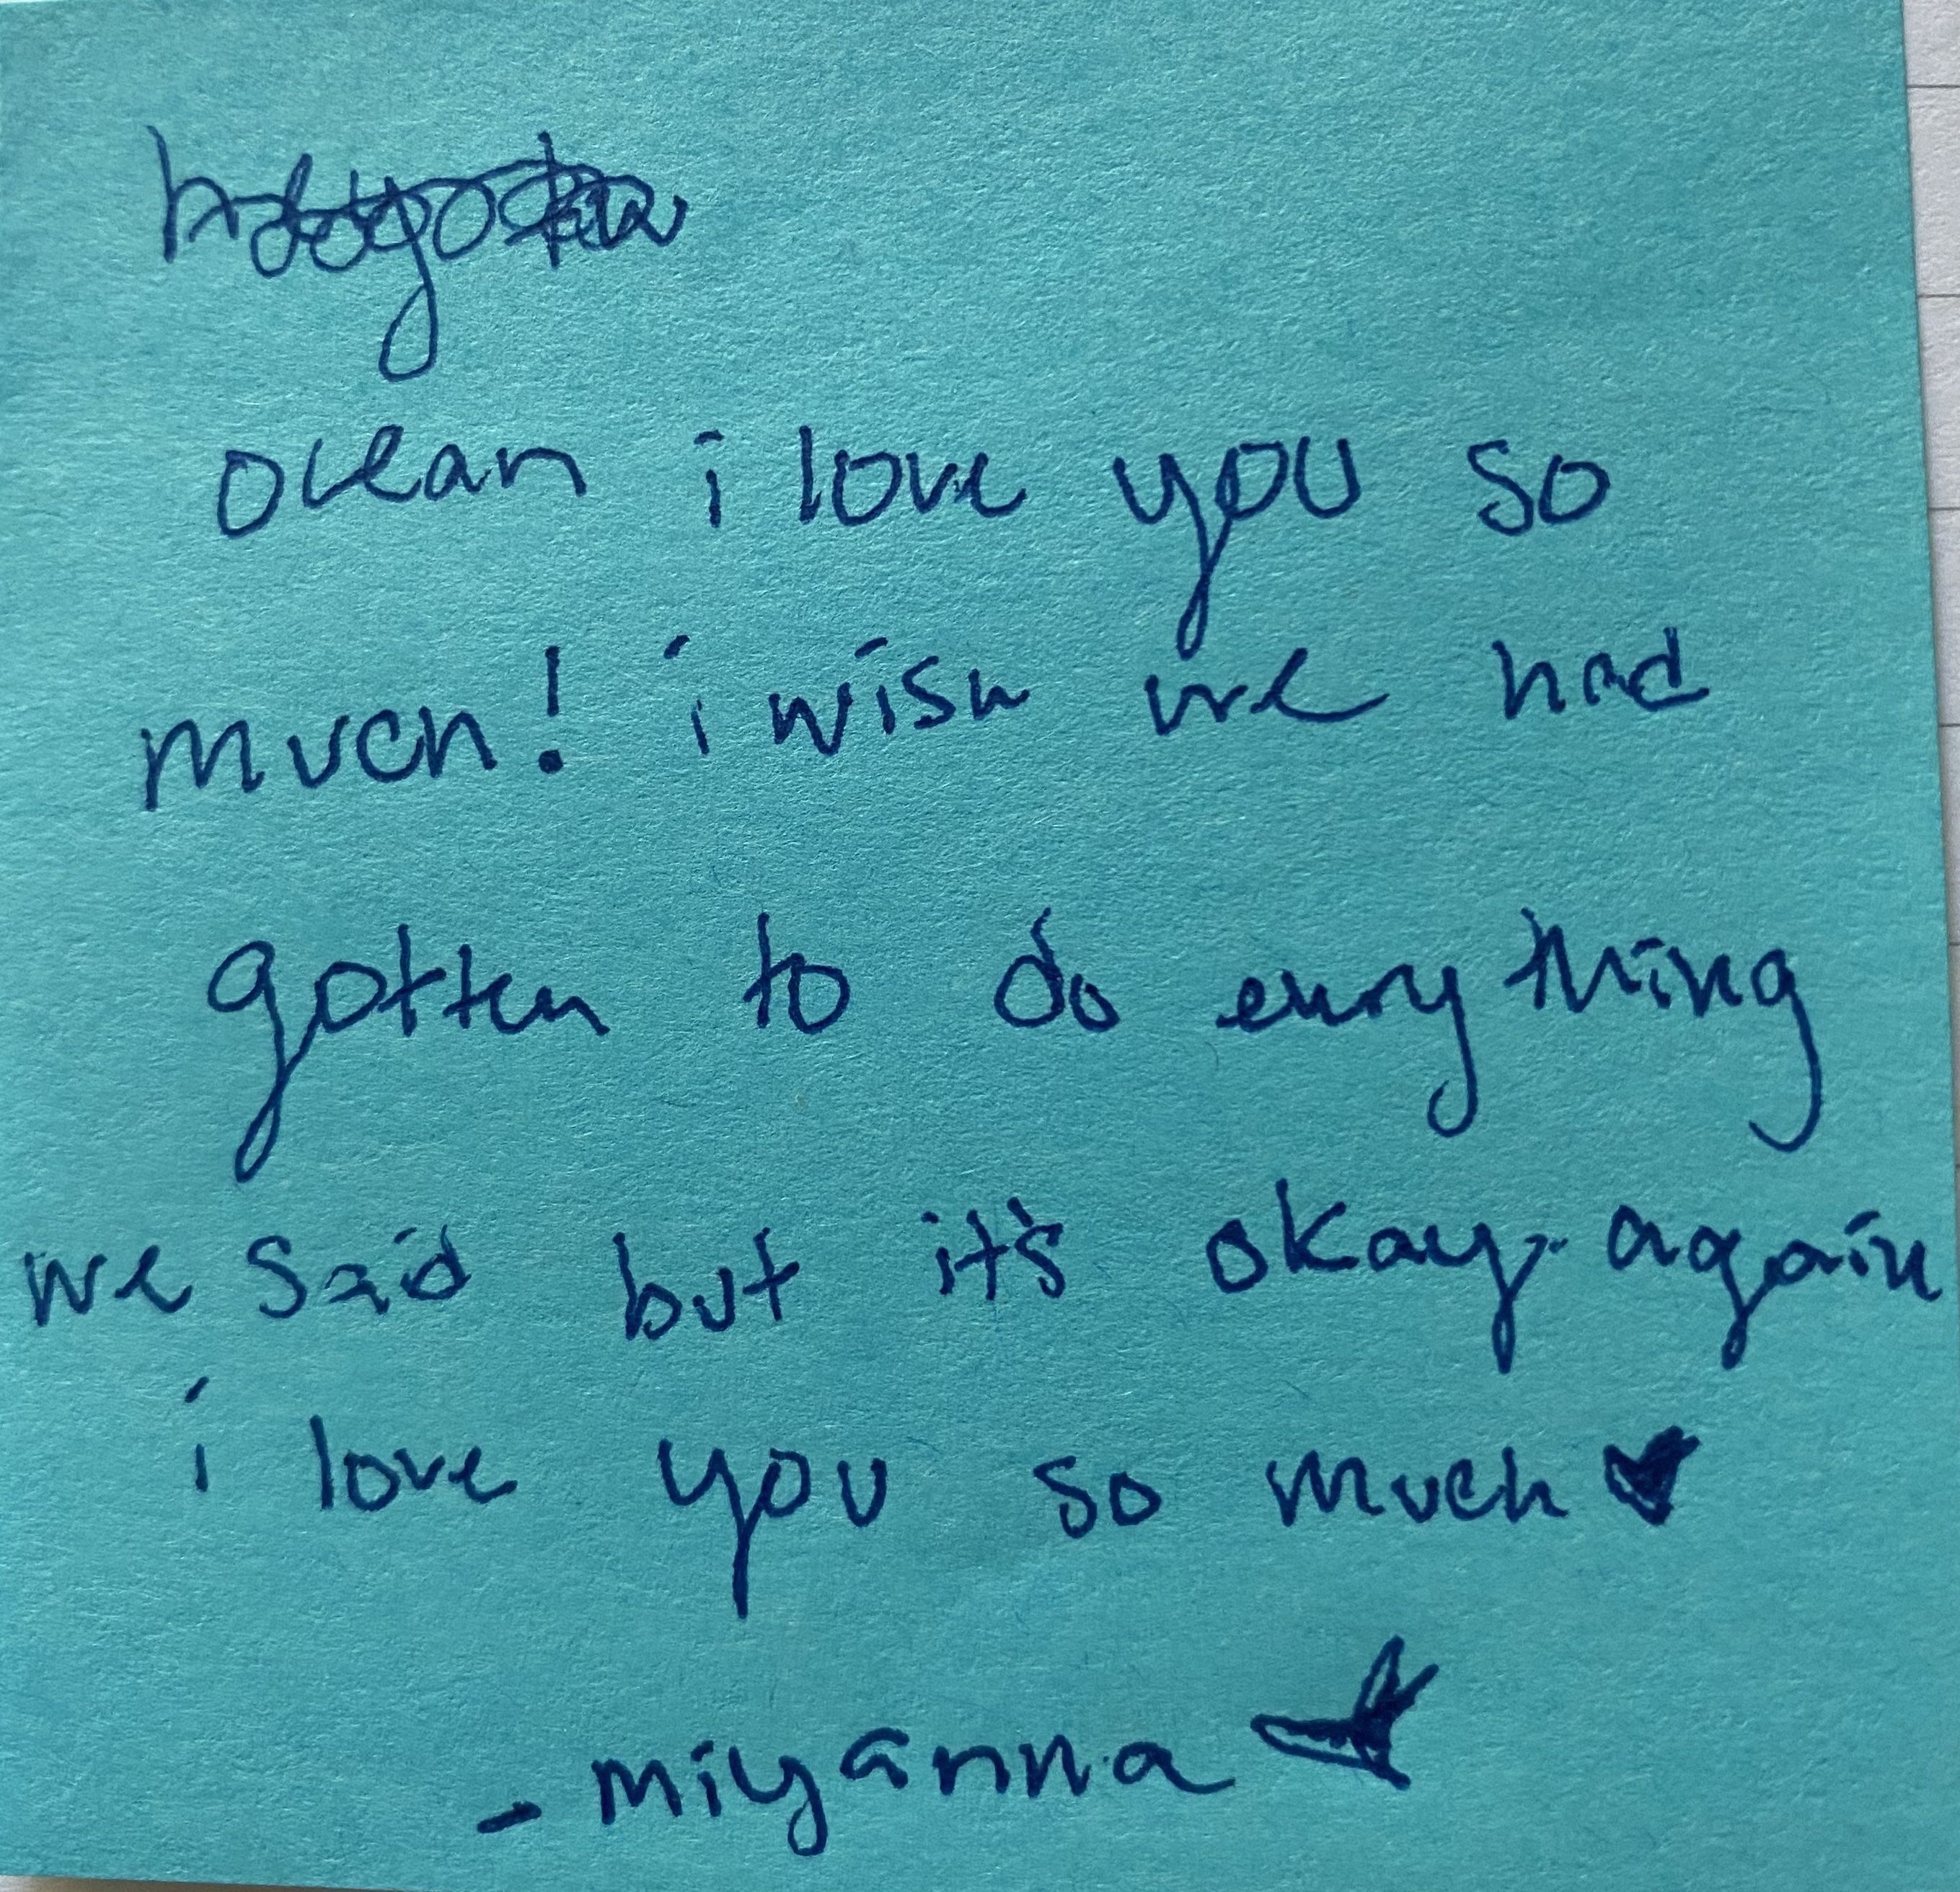 ocean i love you so
much! i wish we had
gotten to do everything
we said but it's okay. again
i love you so much ♥
- miyanna ♥